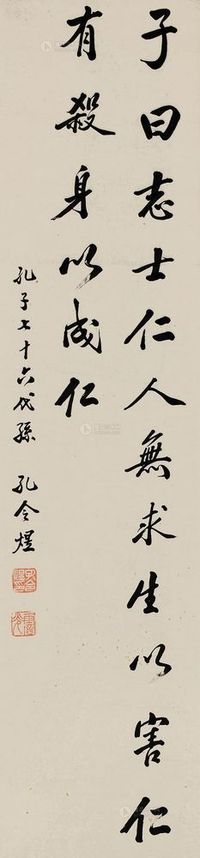 子曰志士仁人無求生以害仁
有殺身以成仁
孔子七十六代孫 孔令煜